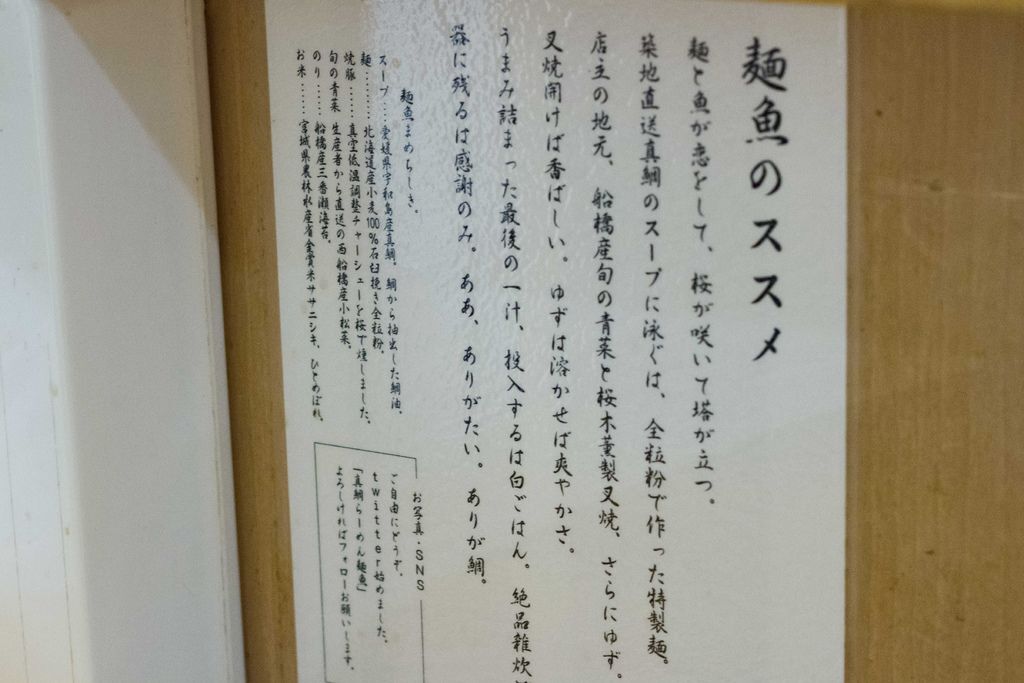 麺魚のススメ
麺と魚が恋をして、桜が咲いて塔が立つ。
築地直送真鯛のスープに泳ぐは、全粒粉で作った特製麺。
店主の地元、船橋産旬の青菜と桜木薫製叉焼、さらにゆず。
叉焼開けば香ばしい。ゆずは溶かせば爽やかさ。
うまみ詰まった最後の一汁、投入するは白ごはん。絶品雑炊
器に残るは感謝のみ。ああ、ありがたい。ありが鯛。
麺魚まめちしき。
スープ…愛媛県宇和島産真鯛。鯛から抽出した鯛油。
麺……北海道産小麦100%石臼挽き全粒粉。
焼豚……真空低温調整チャーシューを桜で燻しました。
旬の青菜 生産者から直送の西船橋産小松菜。
のり……船橋産三番瀬海苔。
お米……宮城県農林水産省金賞米ササニシキ、ひとめぼれ。
お写真・SNS
ご自由にどうぞ。
twitter始めました。
「真鯛らーめん麺魚」
よろしければフォローお願いします。